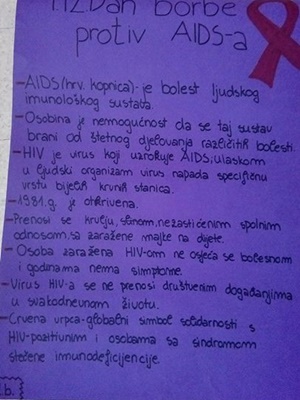 TJEDAN borbe
protiv AIDS-a
-AIDS (hrv. kopnica)- je bolest ljudskog
imunološkog sustava.
-Osobina je nemogućnost da se taj sustav
brani od štetnog djelovanja različitih bolesti.
-HIV je virus koji uzrokuje AIDS, ulaskom
u ljudski organizam virus napada specifičnu
vrstu bijelih krvnih stanica.
-1981.g. je otkrivena.
-Prenosi se krvlju, nezaštićenim spolnim
odnosom, sa zaražene majke na dijete.
-Osoba zaražena HIV-om ne osjeća se bolesnom
i godinama nema simptome.
-Virus HIV-a se ne prenosi društvenim događanjima
u svakodnevnom životu.
-Crvena vrpca-globalni simbol solidarnosti s
HIV-pozitivnim i osobama sa sindromom
stečene imunodeficijencije.
.b.